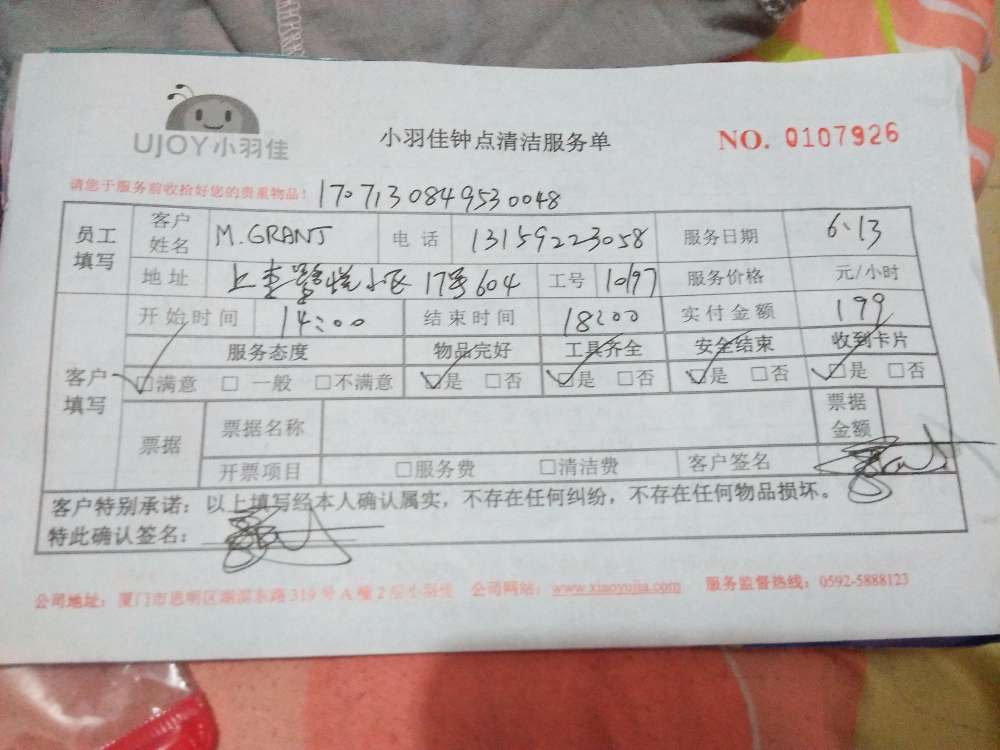 UJOY小羽佳
小羽佳钟点清洁服务单
NO. 0107926
请您于服务前收拾好您的贵重物品：
1707130849530048
员工填写
客户姓名 M.GRANT 电话 13159223058 服务日期 6.13
地址 小区 17号604 工号 10197 服务价格 元/小时
客户填写
开始时间 14:00 结束时间 18:00 实付金额 199
服务态度 物品完好 工具齐全 安全结束 收到卡片
☑满意 □一般 □不满意 ☑是 □否 ☑是 □否 ☑是 □否 ☑是 □否
票据 票据名称 票据金额
开票项目 □服务费 □清洁费 客户签名
客户特别承诺：以上填写经本人确认属实，不存在任何纠纷，不存在任何物品损坏。
特此确认签名：
公司地址：厦门市思明区湖滨东路319号A幢2层小羽佳 公司网站：www.xiaoyujia.com 服务监督热线：0592-5888123